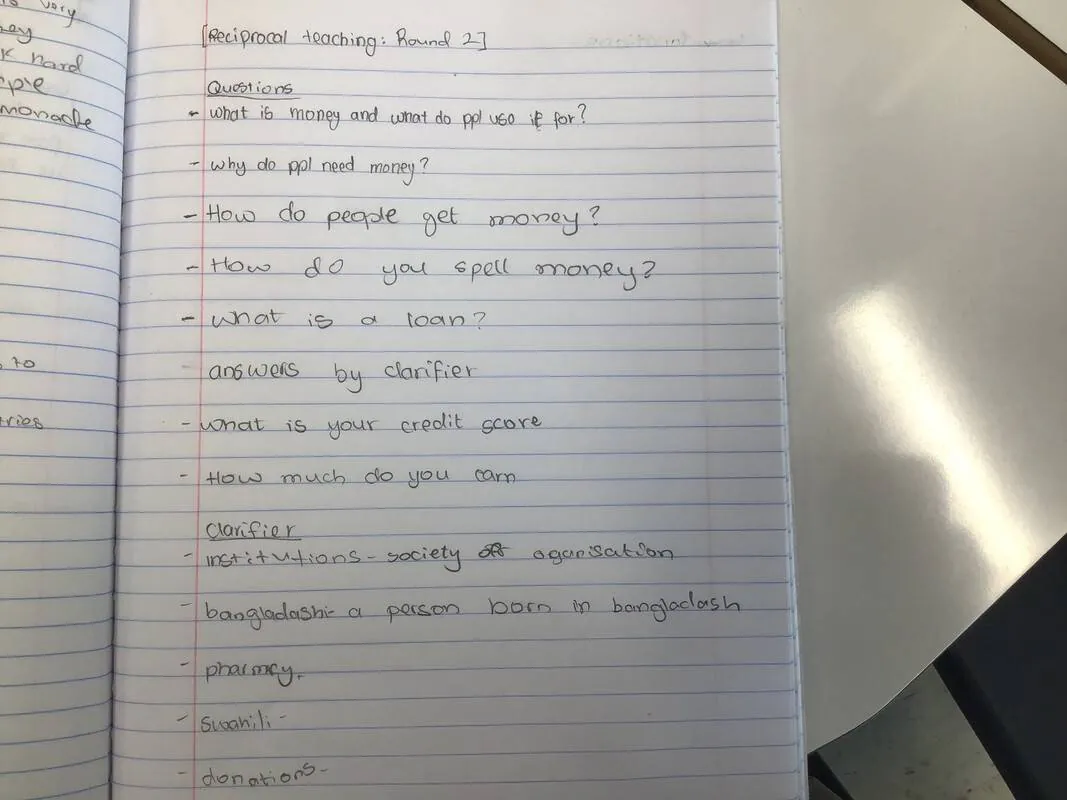 very
ney
k hard
ople
monade
to
tries
[Reciprocal teaching: Round 2]
Questions
- what is money and what do ppl use it for?
- why do ppl need money?
- How do people get money?
- How do you spell money?
- what is a loan?
- answers by clarifier
- what is your credit score
- How much do you earn
Clarifier
- institutions - society or oganisation
- bangladashi - a person born in bangladash
- pharmcy.
- Swahili -
- donations -